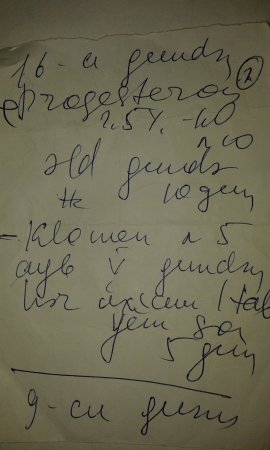 16-cı gündən
②
Progesteron
2.5% -1.0
n 10
əld gündə
10 gün
- Klomen n 5
ayb V gündən
hər axşam 1 tab
yem son
5 gün
9-cu gunu